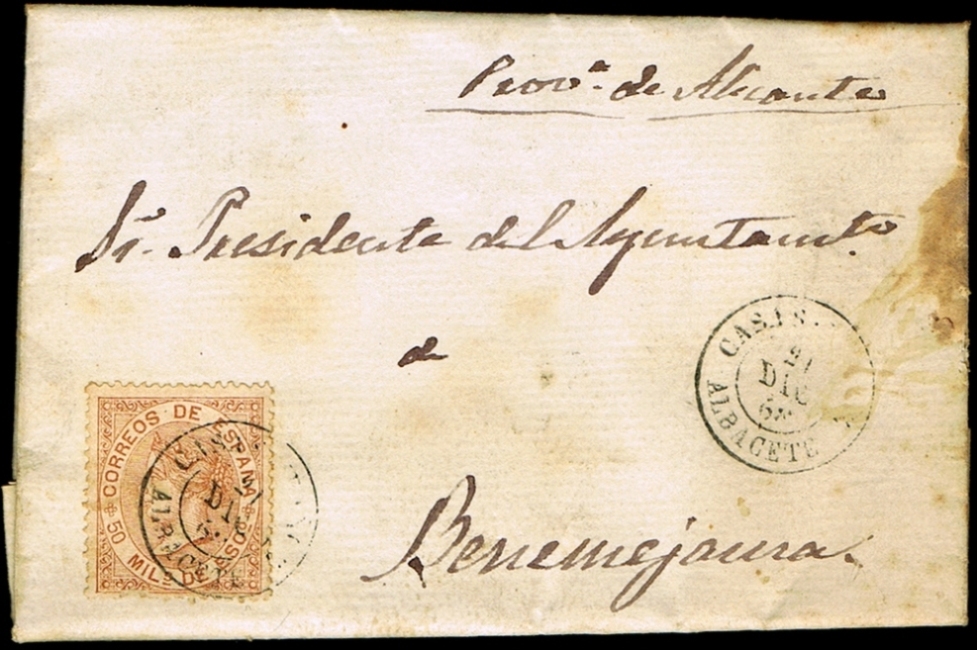 Provª de Alicante
Sr. Presidente del Ayuntamto
de
Benemejama.
CORREOS DE ESPAÑA
50 MILS DE ESCO
CAS
ALBACETE
DIC
CASIS.
21
DIC
68
ALBACETE